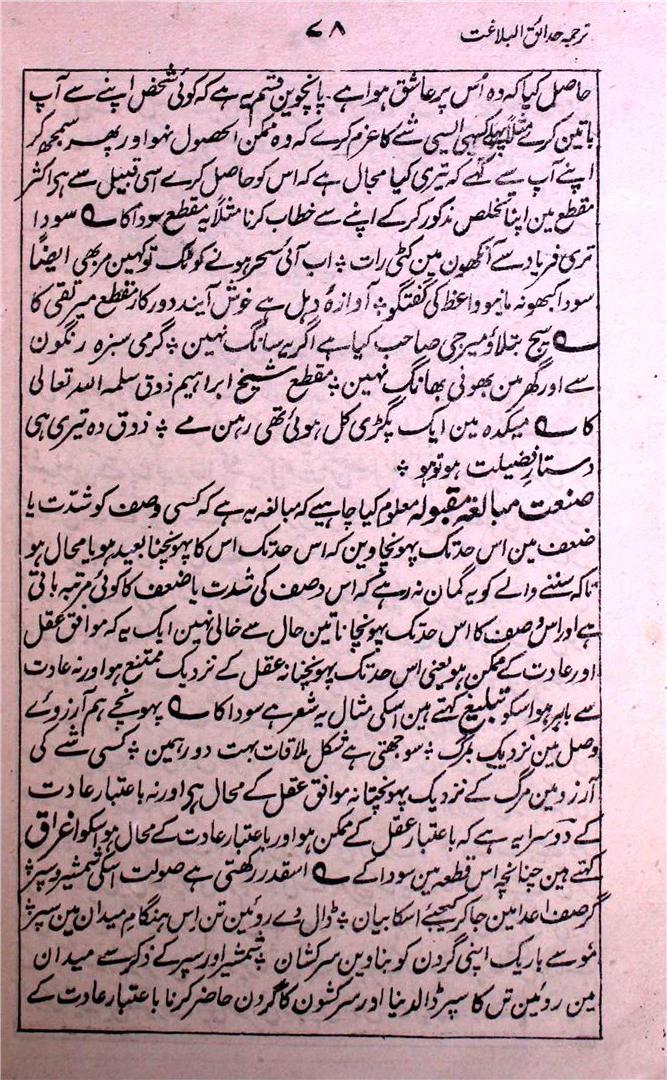 ترجمہ حدائق البلاغت
۷۸
حاصل کیا کہ وہ اُس پر عاشق ہوا ہے۔ پانچوین قسم یہ ہے کہ کوئی شخص اپنے سے آپ
باتین کرے مثلاً پہلے کسی ایسی شے کا عزم کرے کہ وہ ممکن الحصول نہو اور پھر سمجھ کر
اپنے آپ سے کہے کہ تیری کیا مجال ہے کہ اس کو حاصل کرے اسی قبیل سے ہر اکثر
مقطع مین اپنا تخلص مذکور کر کے اپنے سے خطاب کرنا مثلاً یہ مقطع سودا کا ؎ سودا
تری فریاد سے آنکھون مین کٹی رات ؞ اب آئی سحر ہونے کو ٹک تو کہین مر بھی ایضاً
سودا کبھو نہ مانیو واعظ کی گفتگو ؞ آوازۂ دہل ہے خوش آیند دور کا ؞ مقطع میر تقی کا
؎ سچ بتلاؤ میر جی صاحب کیا ہے اگر یہ سانگ نہین ؞ گرمی سبزہ رنگون
سے اور گھر مین بھونی بھانگ نہین ؞ مقطع شیخ ابراہیم ذوق سلمہ اللہ تعالی
کا ؎ میکدہ مین ایک پگڑی کل ہوئی تھی رہن مے ؞ ذوق وہ تیری ہی
دستار فضیلت ہو تو ہو ؞
صنعت مبالغہ مقبولہ معلوم کیا چاہیے کہ مبالغہ یہ ہے کہ کسی وصف کو شدّت یا
ضعف مین اس حد تک پہونچاوین کہ اس حد تک اس کا پہونچنا بعید ہو یا محال ہو
تاکہ سننے والے کو یہ گمان نہ رہے کہ اس وصف کی شدت یا ضعف کا کوئی مرتبہ باقی
ہے اور اس وصف کا اس حد تک پہونچانا تین حال سے خالی نہین ایک یہ کہ موافق عقل
اور عادت کے ممکن ہو یعنی اس حد تک پہونچنا نہ عقل کے نزدیک ممتنع ہو اور نہ عادت
سے باہر ہو اسکو تبلیغ کہتے ہین اسکی مثال یہ شعر ہے سودا کا ؎ پہونچے ہم آرزوئے
وصل مین نزدیک بمرگ ؞ سوجھتی ہے شکل ملاقات بہت دور ہمین ؞ کسی شے کی
آرزو مین مرگ کے نزدیک پہونچنا نہ موافق عقل کے محال ہی اور نہ باعتبار عادت
کے دوسرا یہ ہے کہ باعتبار عقل کے ممکن ہو اور باعتبار عادت کے محال ہو اسکو اغراق
کہتے ہین چنانچہ اس قطعہ مین سودا کے ؎ اسقدر رکھتی ہے صولت اسکی شمشیر و سپر ؞
گر صف اعدا مین جا کر کیجئے اسکا بیان ؞ ڈال دے روئین تن اس ہنگام میدان مین سپر ؞
مو سے باریک اپنی گردن کو بنا دین سرکشان ؞ شمشیر اور سپر کے ذکر سے میدان
مین روئین تن کا سپر ڈالدینا اور سرکشون کا گردن حاضر کرنا باعتبار عادت کے